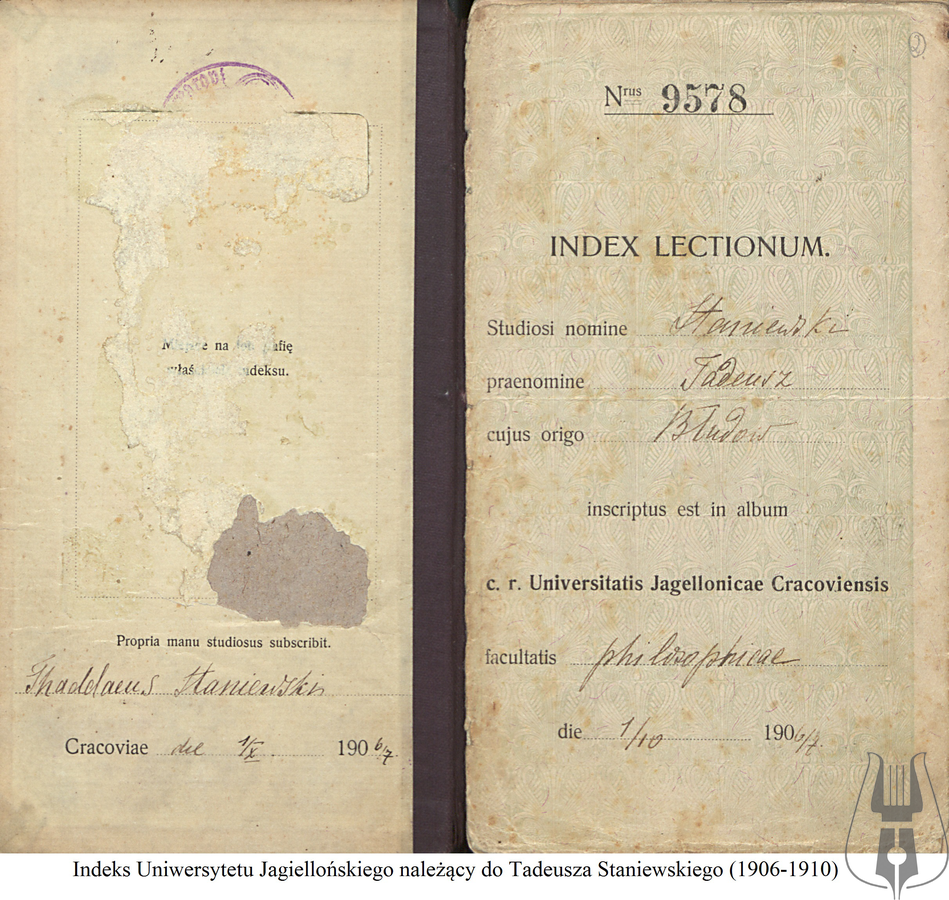 Miejsce na fotografię
właściciela indeksu.
Propria manu studiosus subscribit.
Thaddaeus Staniewski
Cracoviae die 1/X 1906/7.
2
Nrus 9578
INDEX LECTIONUM.
Studiosi nomine Staniewski
praenomine Tadeusz
cujus origo Błudow
inscriptus est in album
c. r. Universitatis Jagellonicae Cracoviensis
facultatis philosophicae
die 1/10 1906/7.
Indeks Uniwersytetu Jagiellońskiego należący do Tadeusza Staniewskiego (1906-1910)